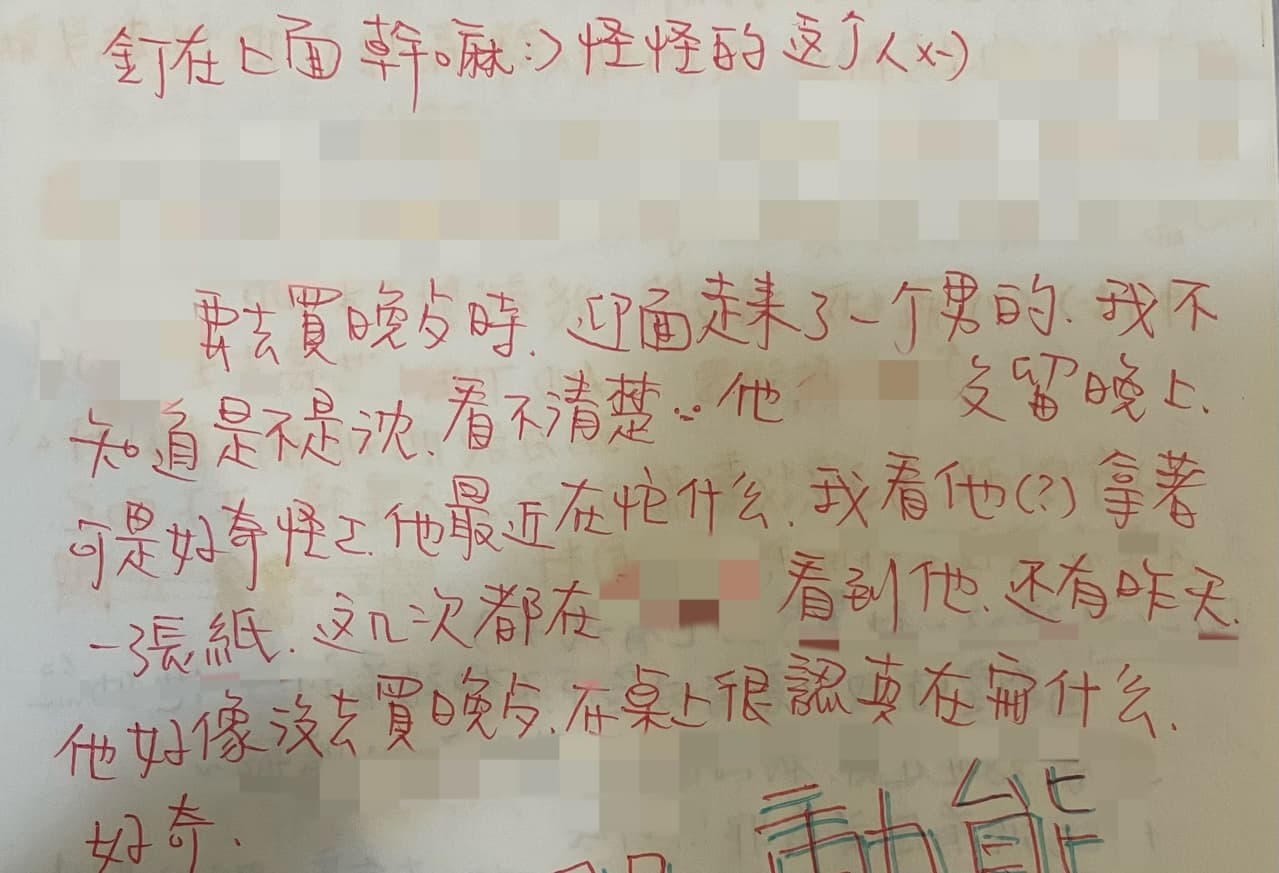 釘在上面幹嘛:) 怪怪的这个人(x-)
要去買晚点時.迎面走来了一个男的.我不
知道是不是沈.看不清楚..他 留晚上.
可是好奇怪.他最近在忙什么.我看他(?)拿著
一張紙.这几次都在 看到他.还有昨天.
他好像沒去買晚点.在桌上很認真在 什么.
好奇.
動能